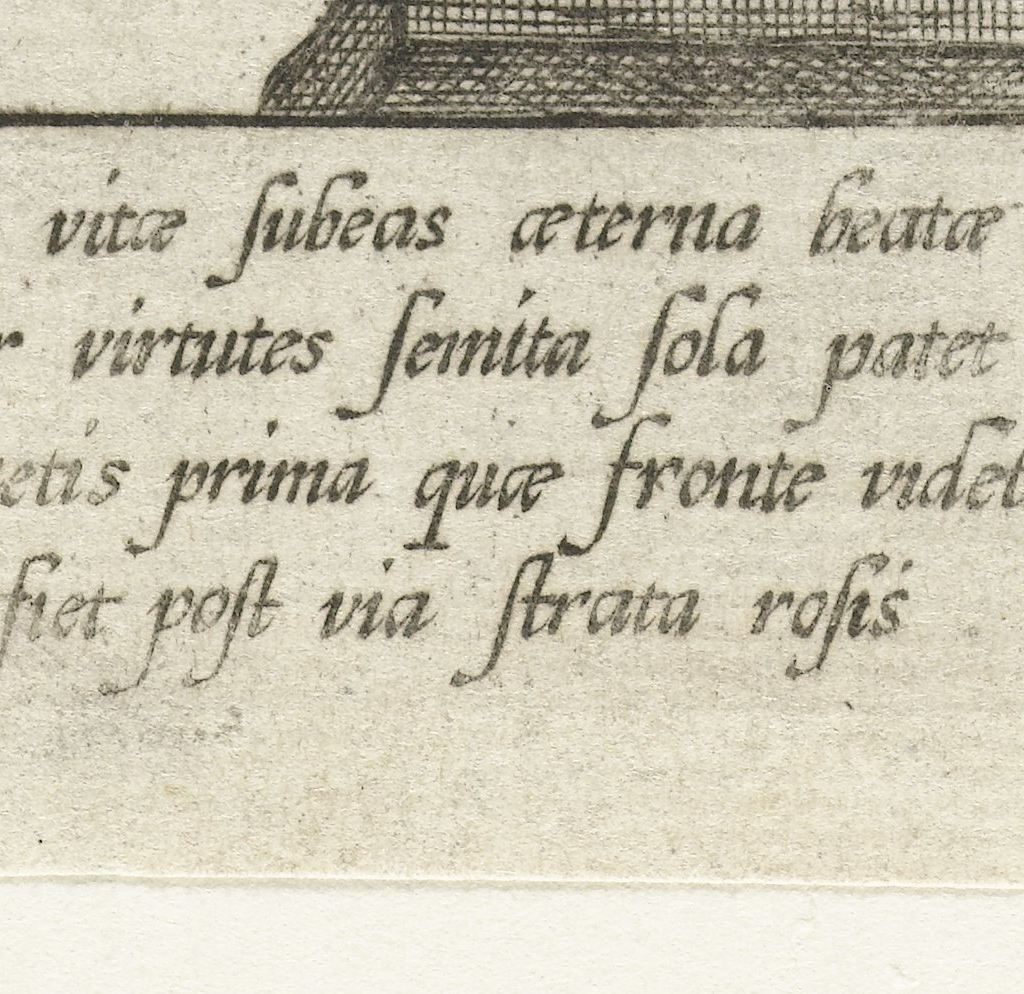 vitæ ſubeas æterna beatæ
virtutes ſemita ſola patet
prima quæ fronte
fiet poſt via ſtrata roſis